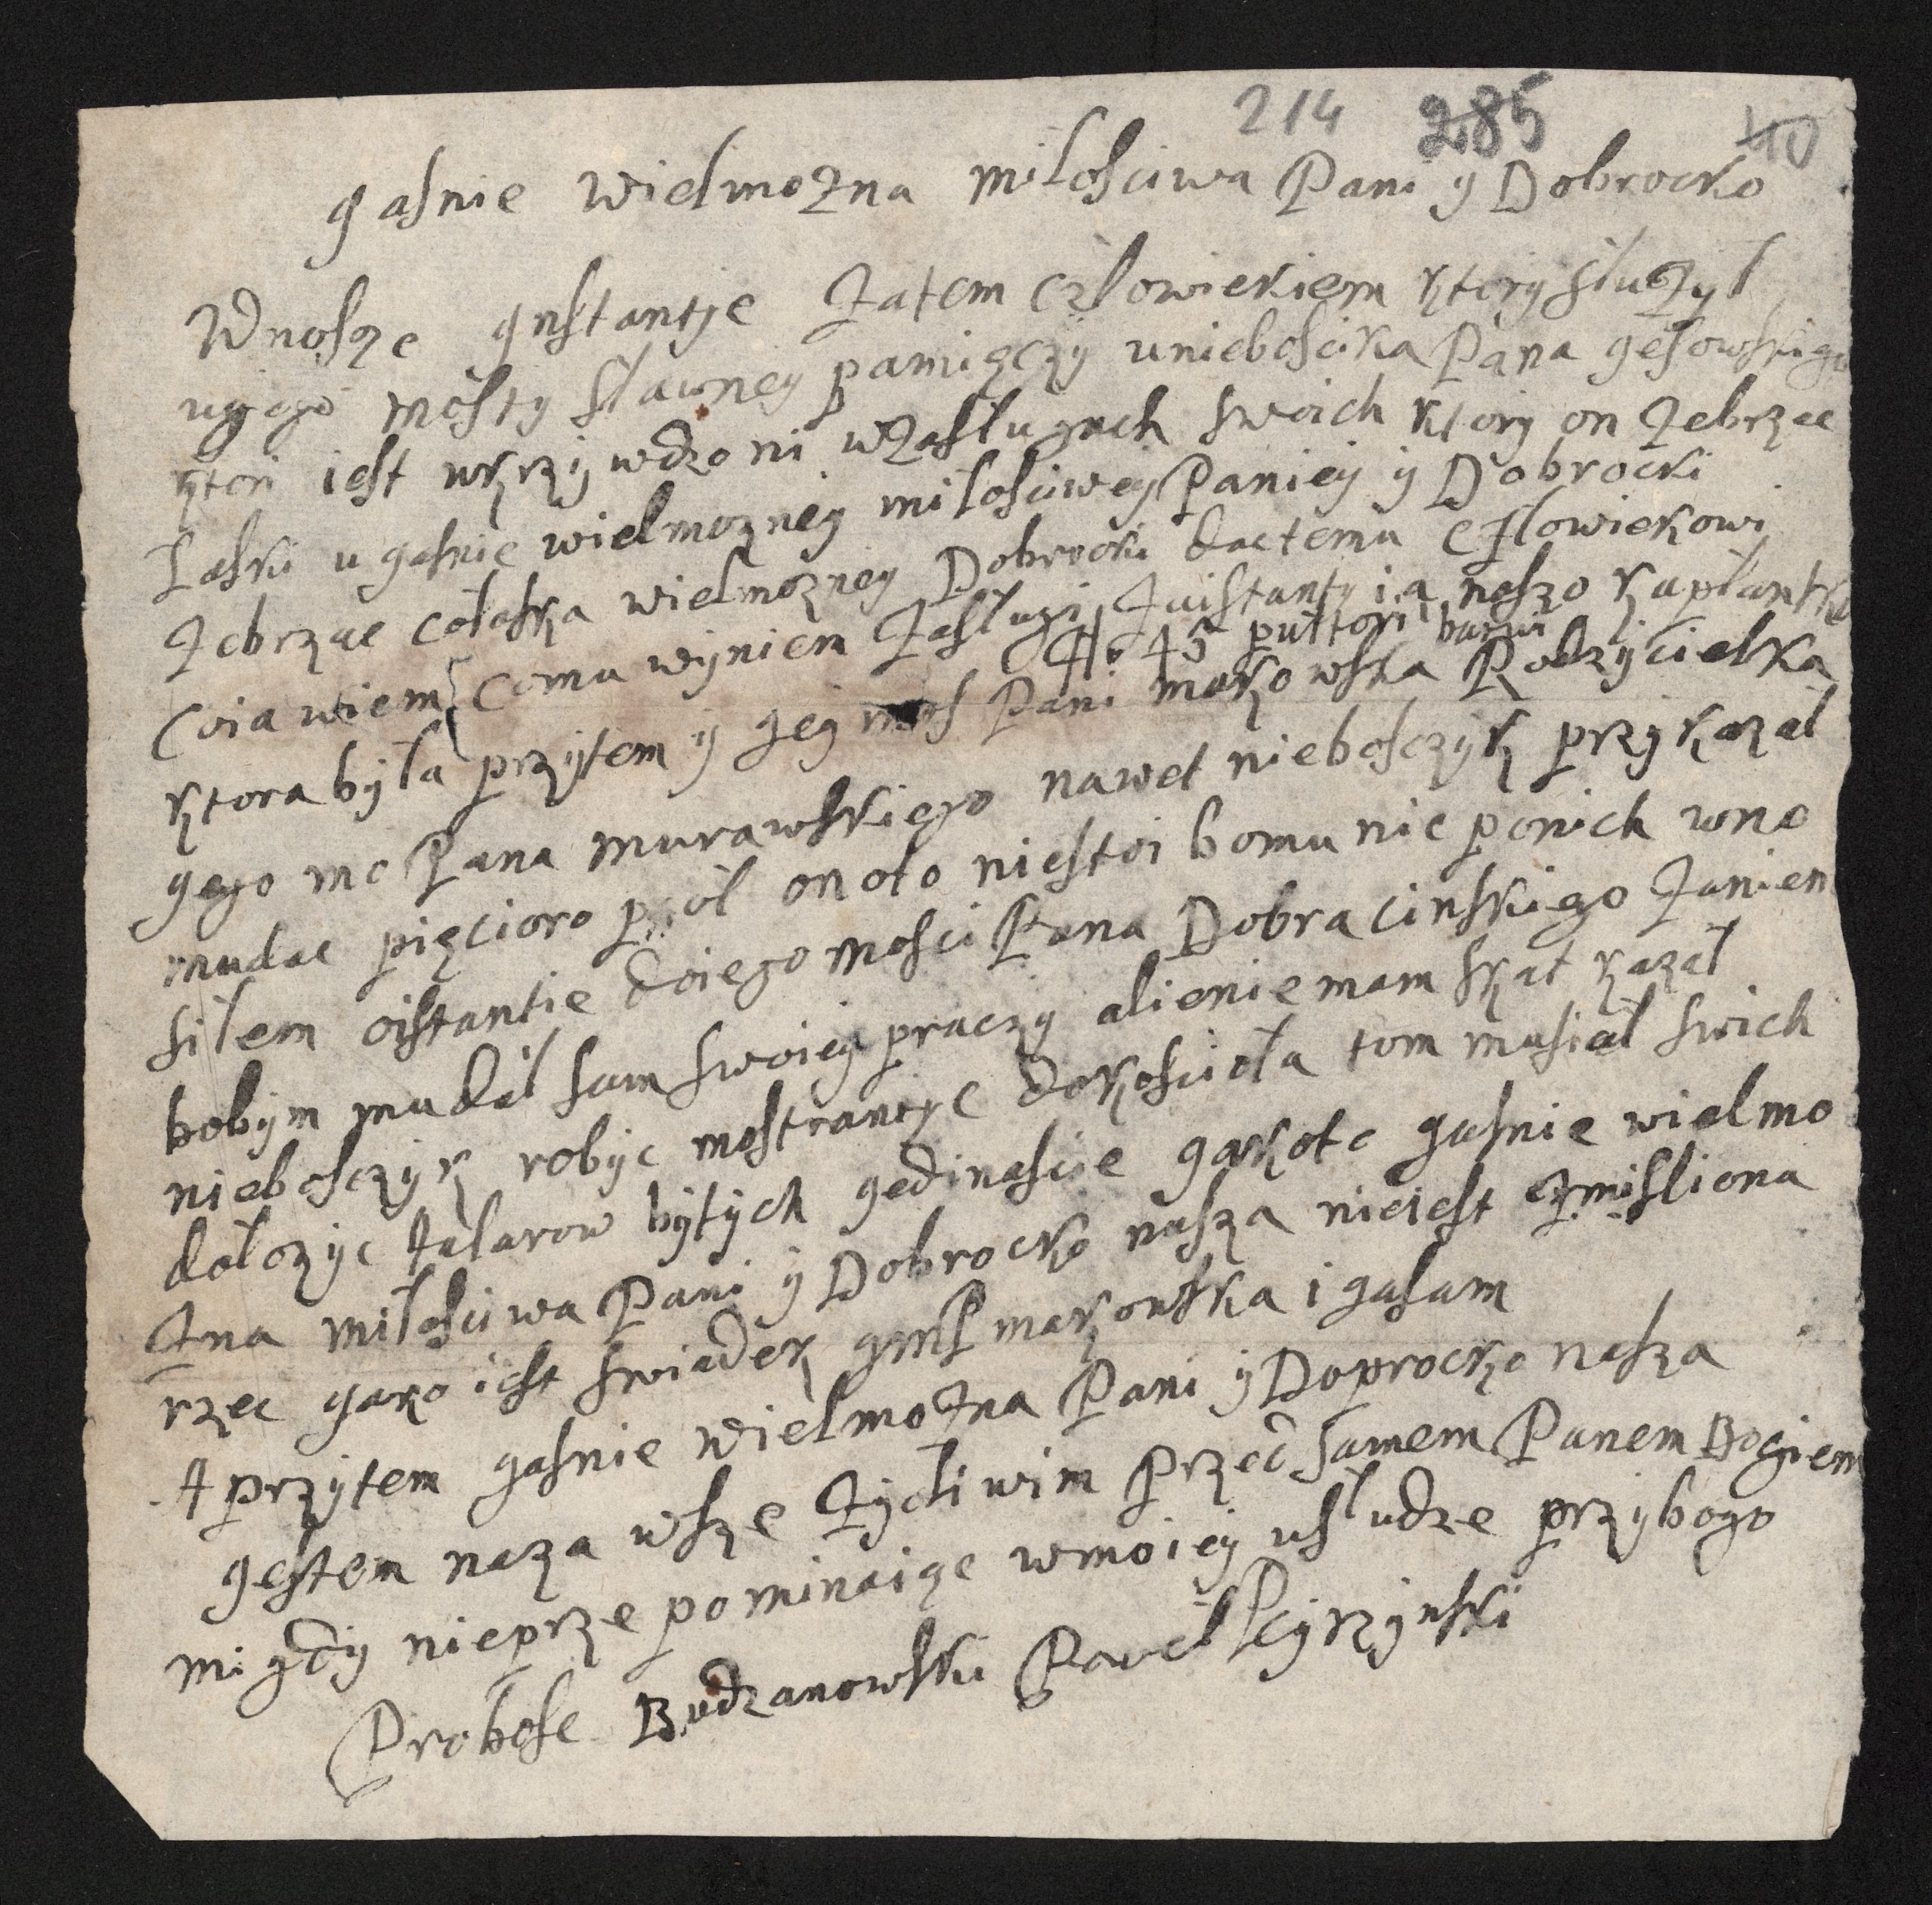 214 285 40
gasnie wielmozna milosciwa Pani y Dobrocko
Wnosze gnstantje Zatem człowiekiem ktory słuzył
ugego mosty sławney pamięczy uniebosicka Pana gesowskiego
ktori iest ukrzywdzoni wZasługach swoich ktory on Zebrze
Łaski u gasnie wielmozney milosciwey Paniey y Dobrocki
Zebrzac colaska wielmozney Dobrocki dactemu człowiekowi
Coia wiem comu wyniem Zasługi Zuistanty ia naszo kaplantka
fl. 45 pułtori barwi
ktora była przytem y gey mos Pani makowska Rodzycielka
gego mc Pana murawskiego nawet nieboszczyk przykazal
mudac pięcioro psol onoto niestoi bomu nie ponich wno
silem oistantie doiego mosci Pana Dobracinskiego Zaniem
bobym mudał sam swoiey praczy alienie mam skat kazał
niebosczyk robyc mostrantye dokosciola tom musiał swich
dolozyc talarow bytych gedinascie gakoto gasnie wielmo
Zna miłosciwa Pani y Dobrocko nasza nieiest Zmisliona
rzec gako iest swiadek gmP makowska i gasam
A przytem gasnie wielmoZna Pani y Doprocko nasza
gestem naza wsze Zycliwim przed samem Panem Bogiem
migdy nieprzepominaiąc wmoiey usłudze przybogo
Probosc Budzanowski Pawel Pcyrzynski